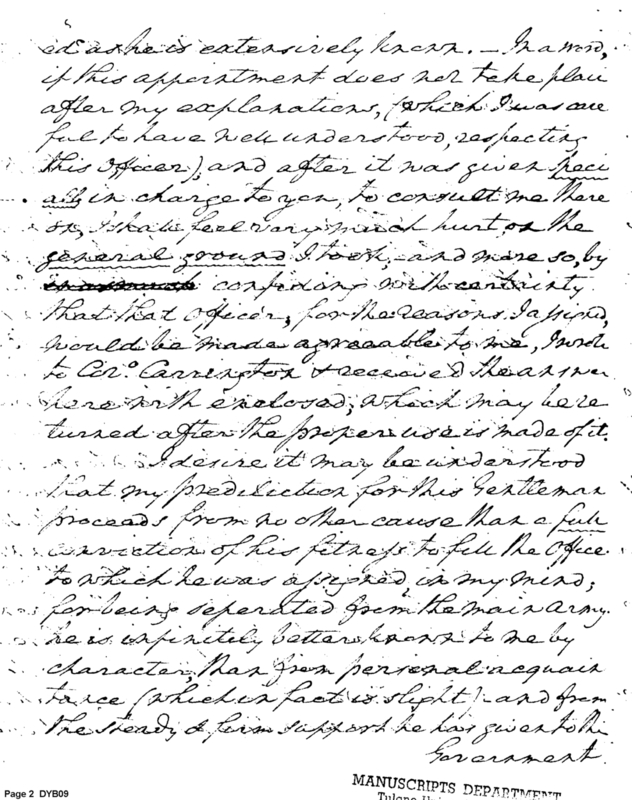 ed as he is extensively known. — In a word,
if this appointment does not take place
after my explanations, (which I was care
ful to have well understood, respecting
this Officer) and after it was given speci
ally in charge to you, to consult me there
on, I shall feel very much hurt on the
general ground I took, and more so, by
inasmuch confiding with certainty
that that Officer, for the reasons I assigned,
would be made agreeable to me, I wrote
to Colo. Carrington & received the answer
herewith enclosed; which may be re
turned after the proper use is made of it.
I desire it may be understood
that my predilection for this Gentleman
proceeds from no other cause than a full
conviction of his fitness to fill the Office
to which he was assigned, in my mind;
for being seperated from the main Army
he is infinitely better known to me by
character, than from personal acquain
tance (which in fact is slight) and from
the steady & firm support he has given to the
Government.
MANUSCRIPTS DEPARTMENT
Page 2 DYB09